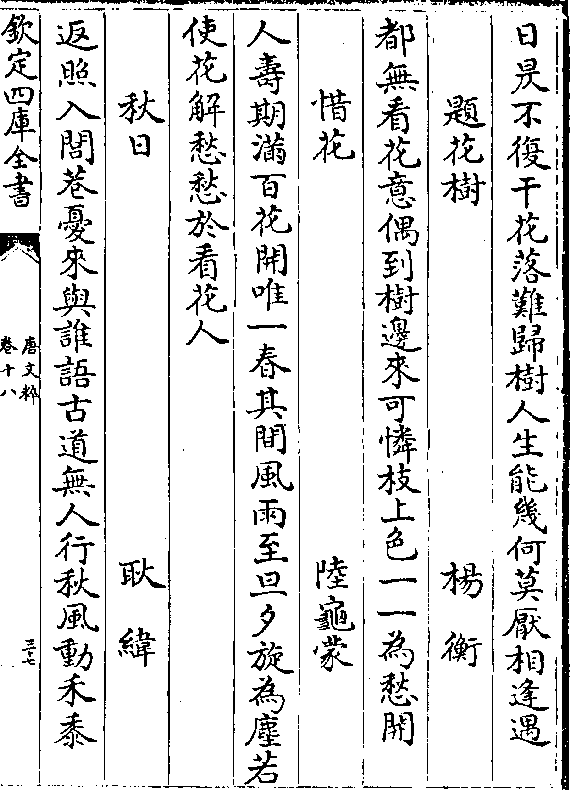 日昃不復干花落難歸樹人生能幾何莫厭相逢遇
題花樹 楊衡
都無看花意偶到樹邊來可憐枝上色一一為愁開
惜花 陸龜蒙
人壽期滿百花開唯一春其間風雨至旦夕旋為塵若
使花解愁愁於看花人
秋日 耿緯
返照入閭巷憂來與誰語古道無人行秋風動禾黍
欽定四庫全書
唐文粹
卷十八
三十七